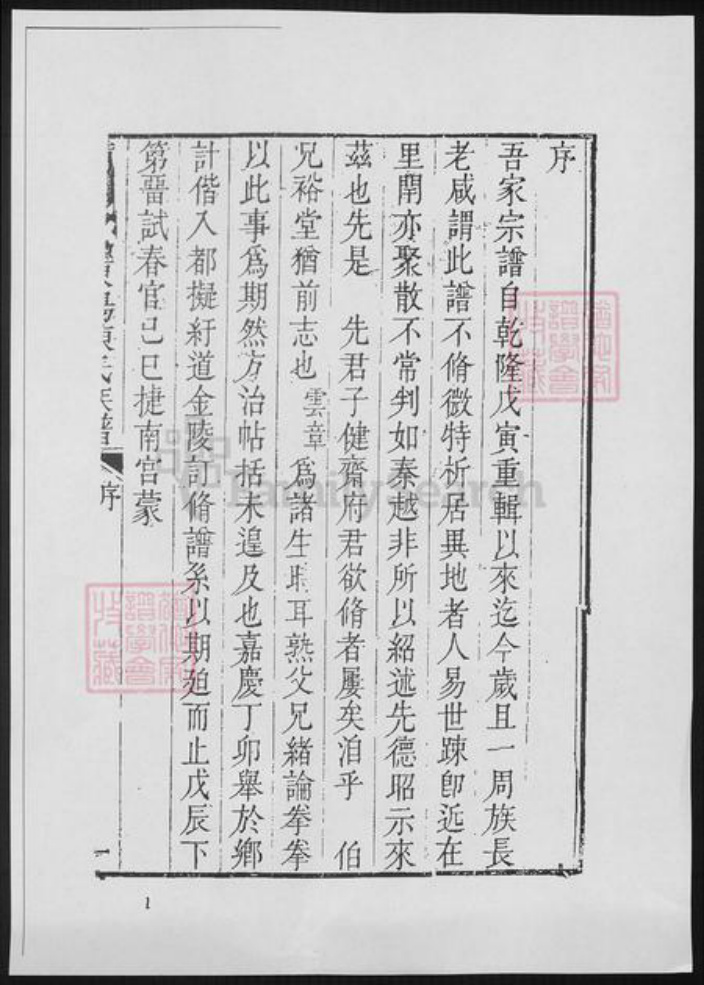 序
吾家宗譜自乾隆戊寅重輯以來迄今歲且一周族長
老咸謂此譜不脩微特析居異地者人易世踈卽近在
里閈亦聚散不常判如秦越非所以紹述先德昭示來
茲也先是　先君子健齋府君欲脩者屢矣洎乎　伯
兄裕堂猶前志也　雲章　爲諸生時耳熟父兄緒論拳拳
以此事爲期然方治帖括未遑及也嘉慶丁卯舉於鄉
計偕入都擬紆道金陵訂脩譜系以期廹而止戊辰下
第畱試春官己巳捷南宫蒙
陳氏族譜
序
一
1
FamilySearch
譜學會
收藏
譜學會
收藏